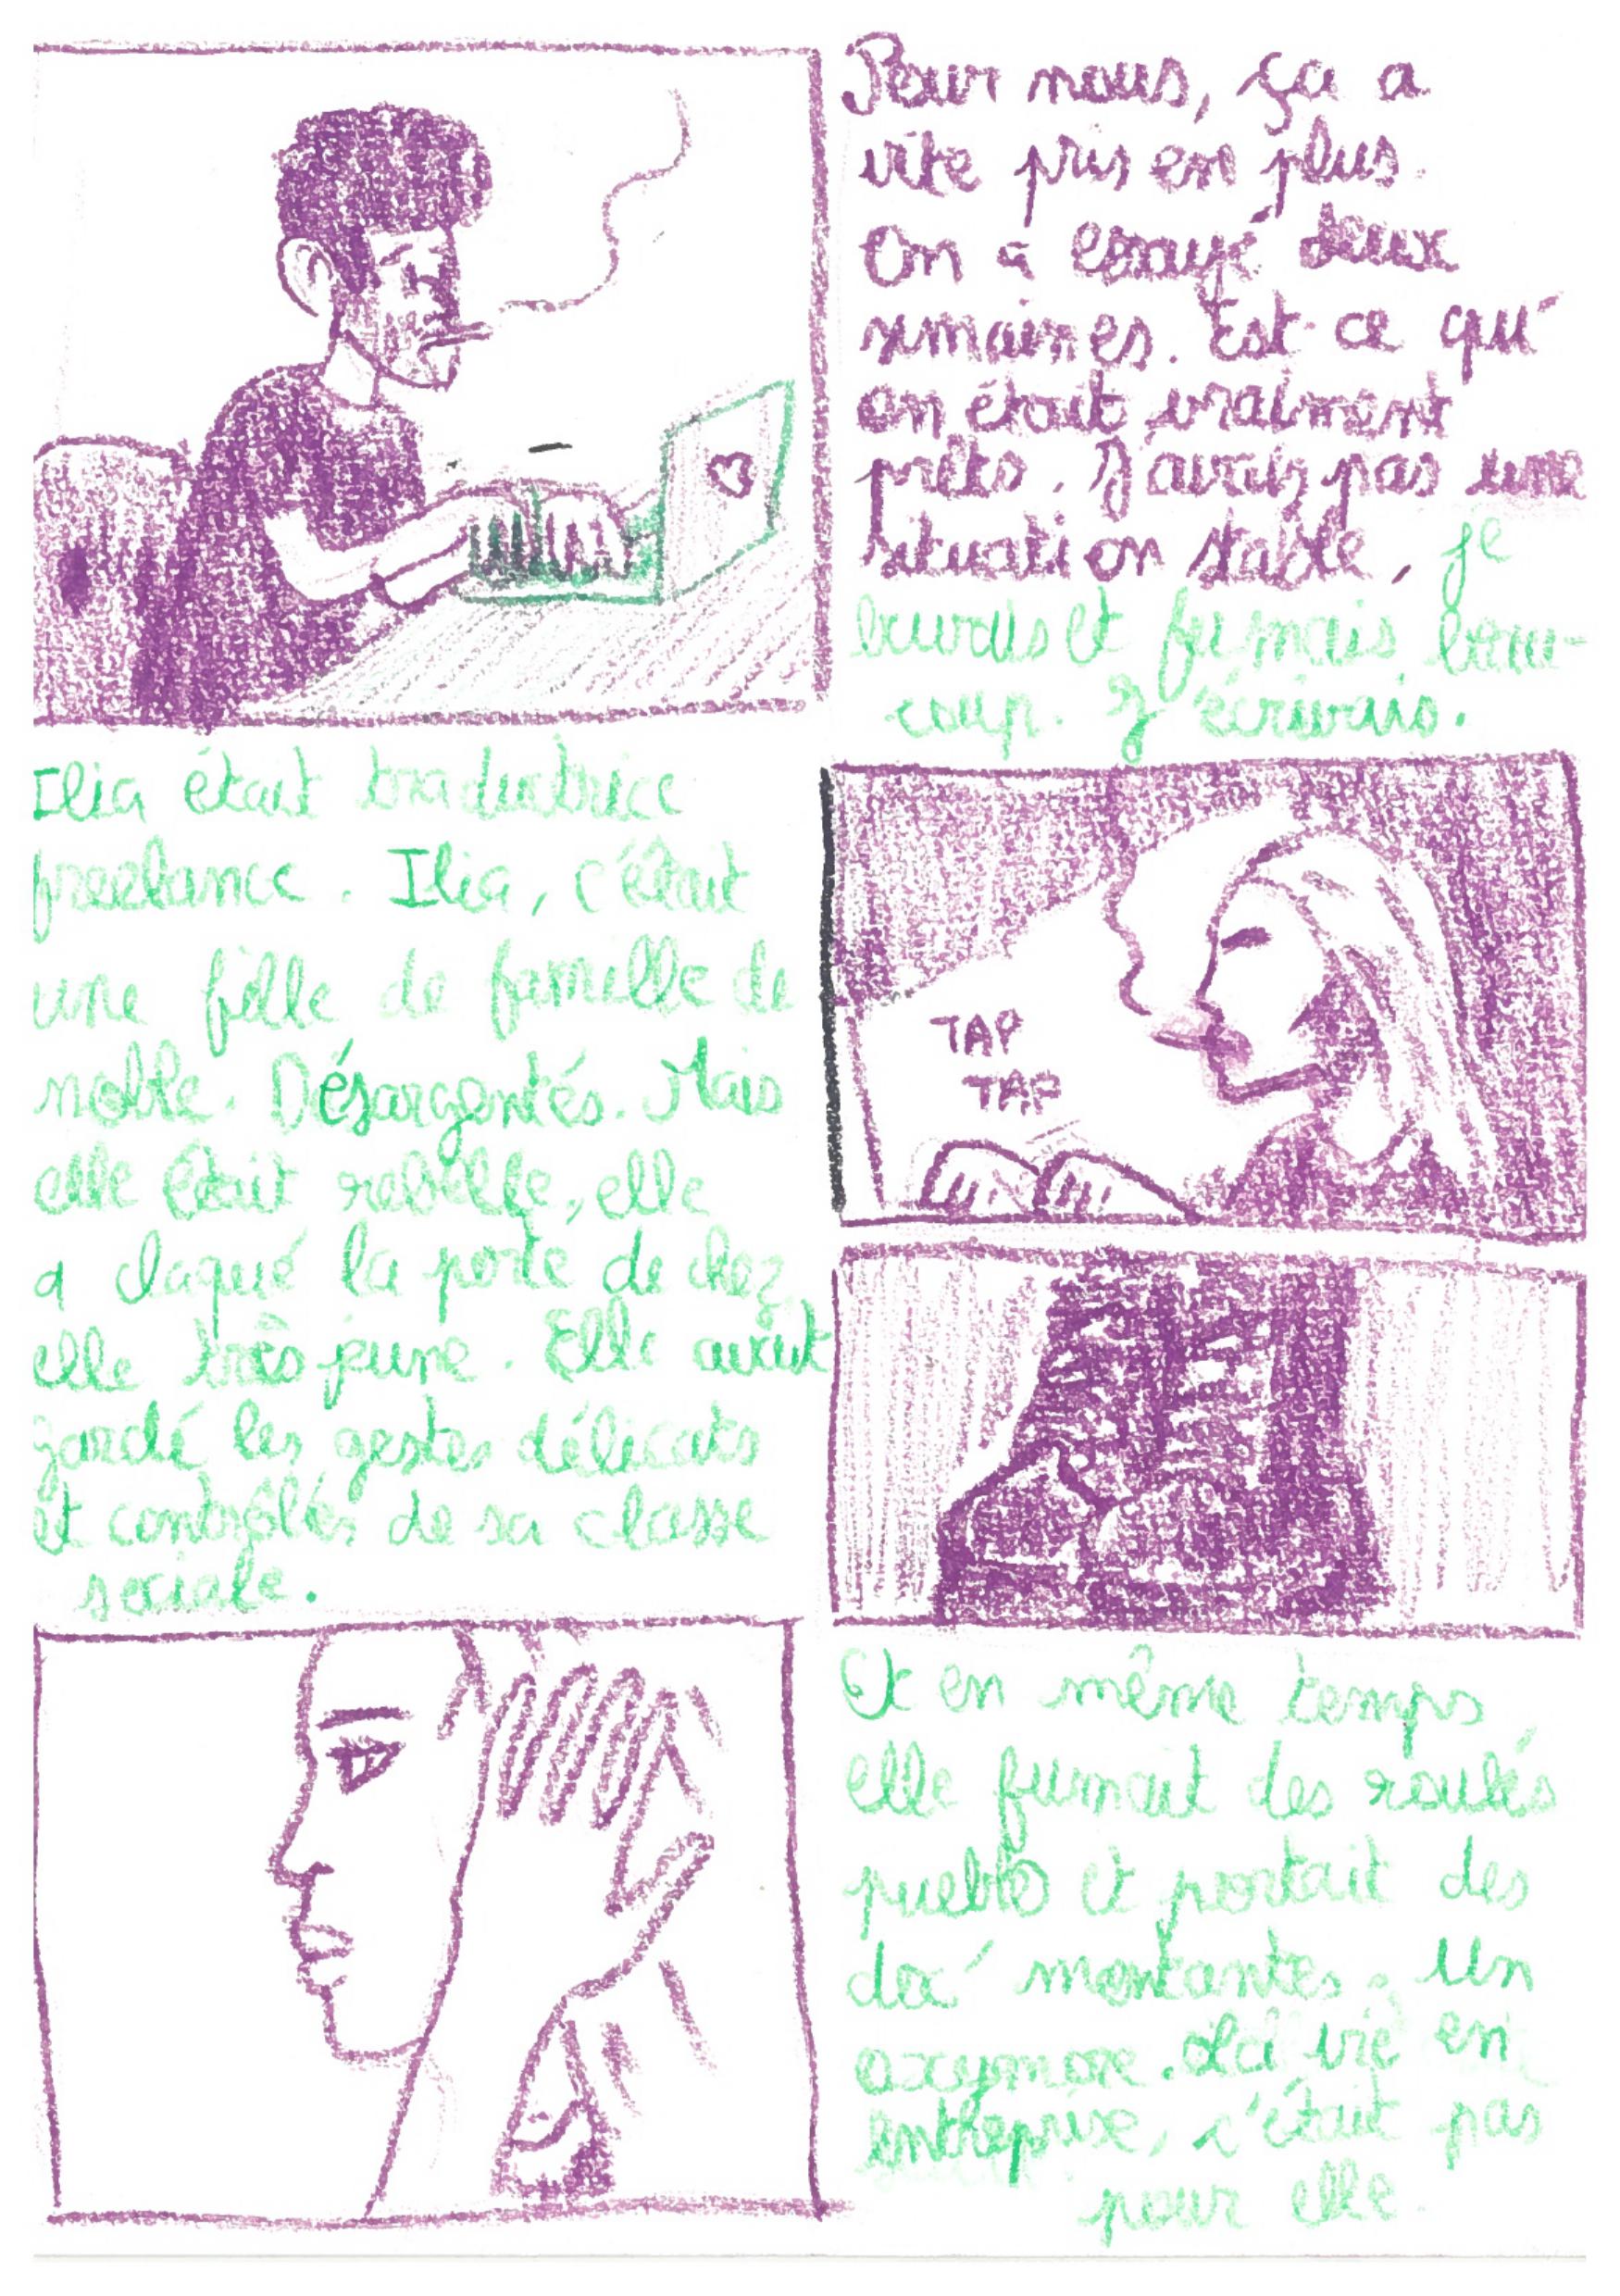 Pour nous, ça a
vite pris en plus.
On a essayé deux
semaines. Est-ce qu'
on était vraiment
prêts. J'avais pas une
situation stable, je
buvais et fumais beau-
coup. J'écrivais.
Ilia était traductrice
freelance. Ilia, c'était
une fille de famille de
noble. Désargentés. Mais
elle était rebelle, elle
a claqué la porte de chez
elle très jeune. Elle avait
gardé les gestes délicats
et contrôlés de sa classe
sociale.
TAP
TAP
Et en même temps
elle fumait des roulés
pueblo et portait des
doc' montantes. Un
oxymore. La vie en
entreprise, c'était pas
pour elle.